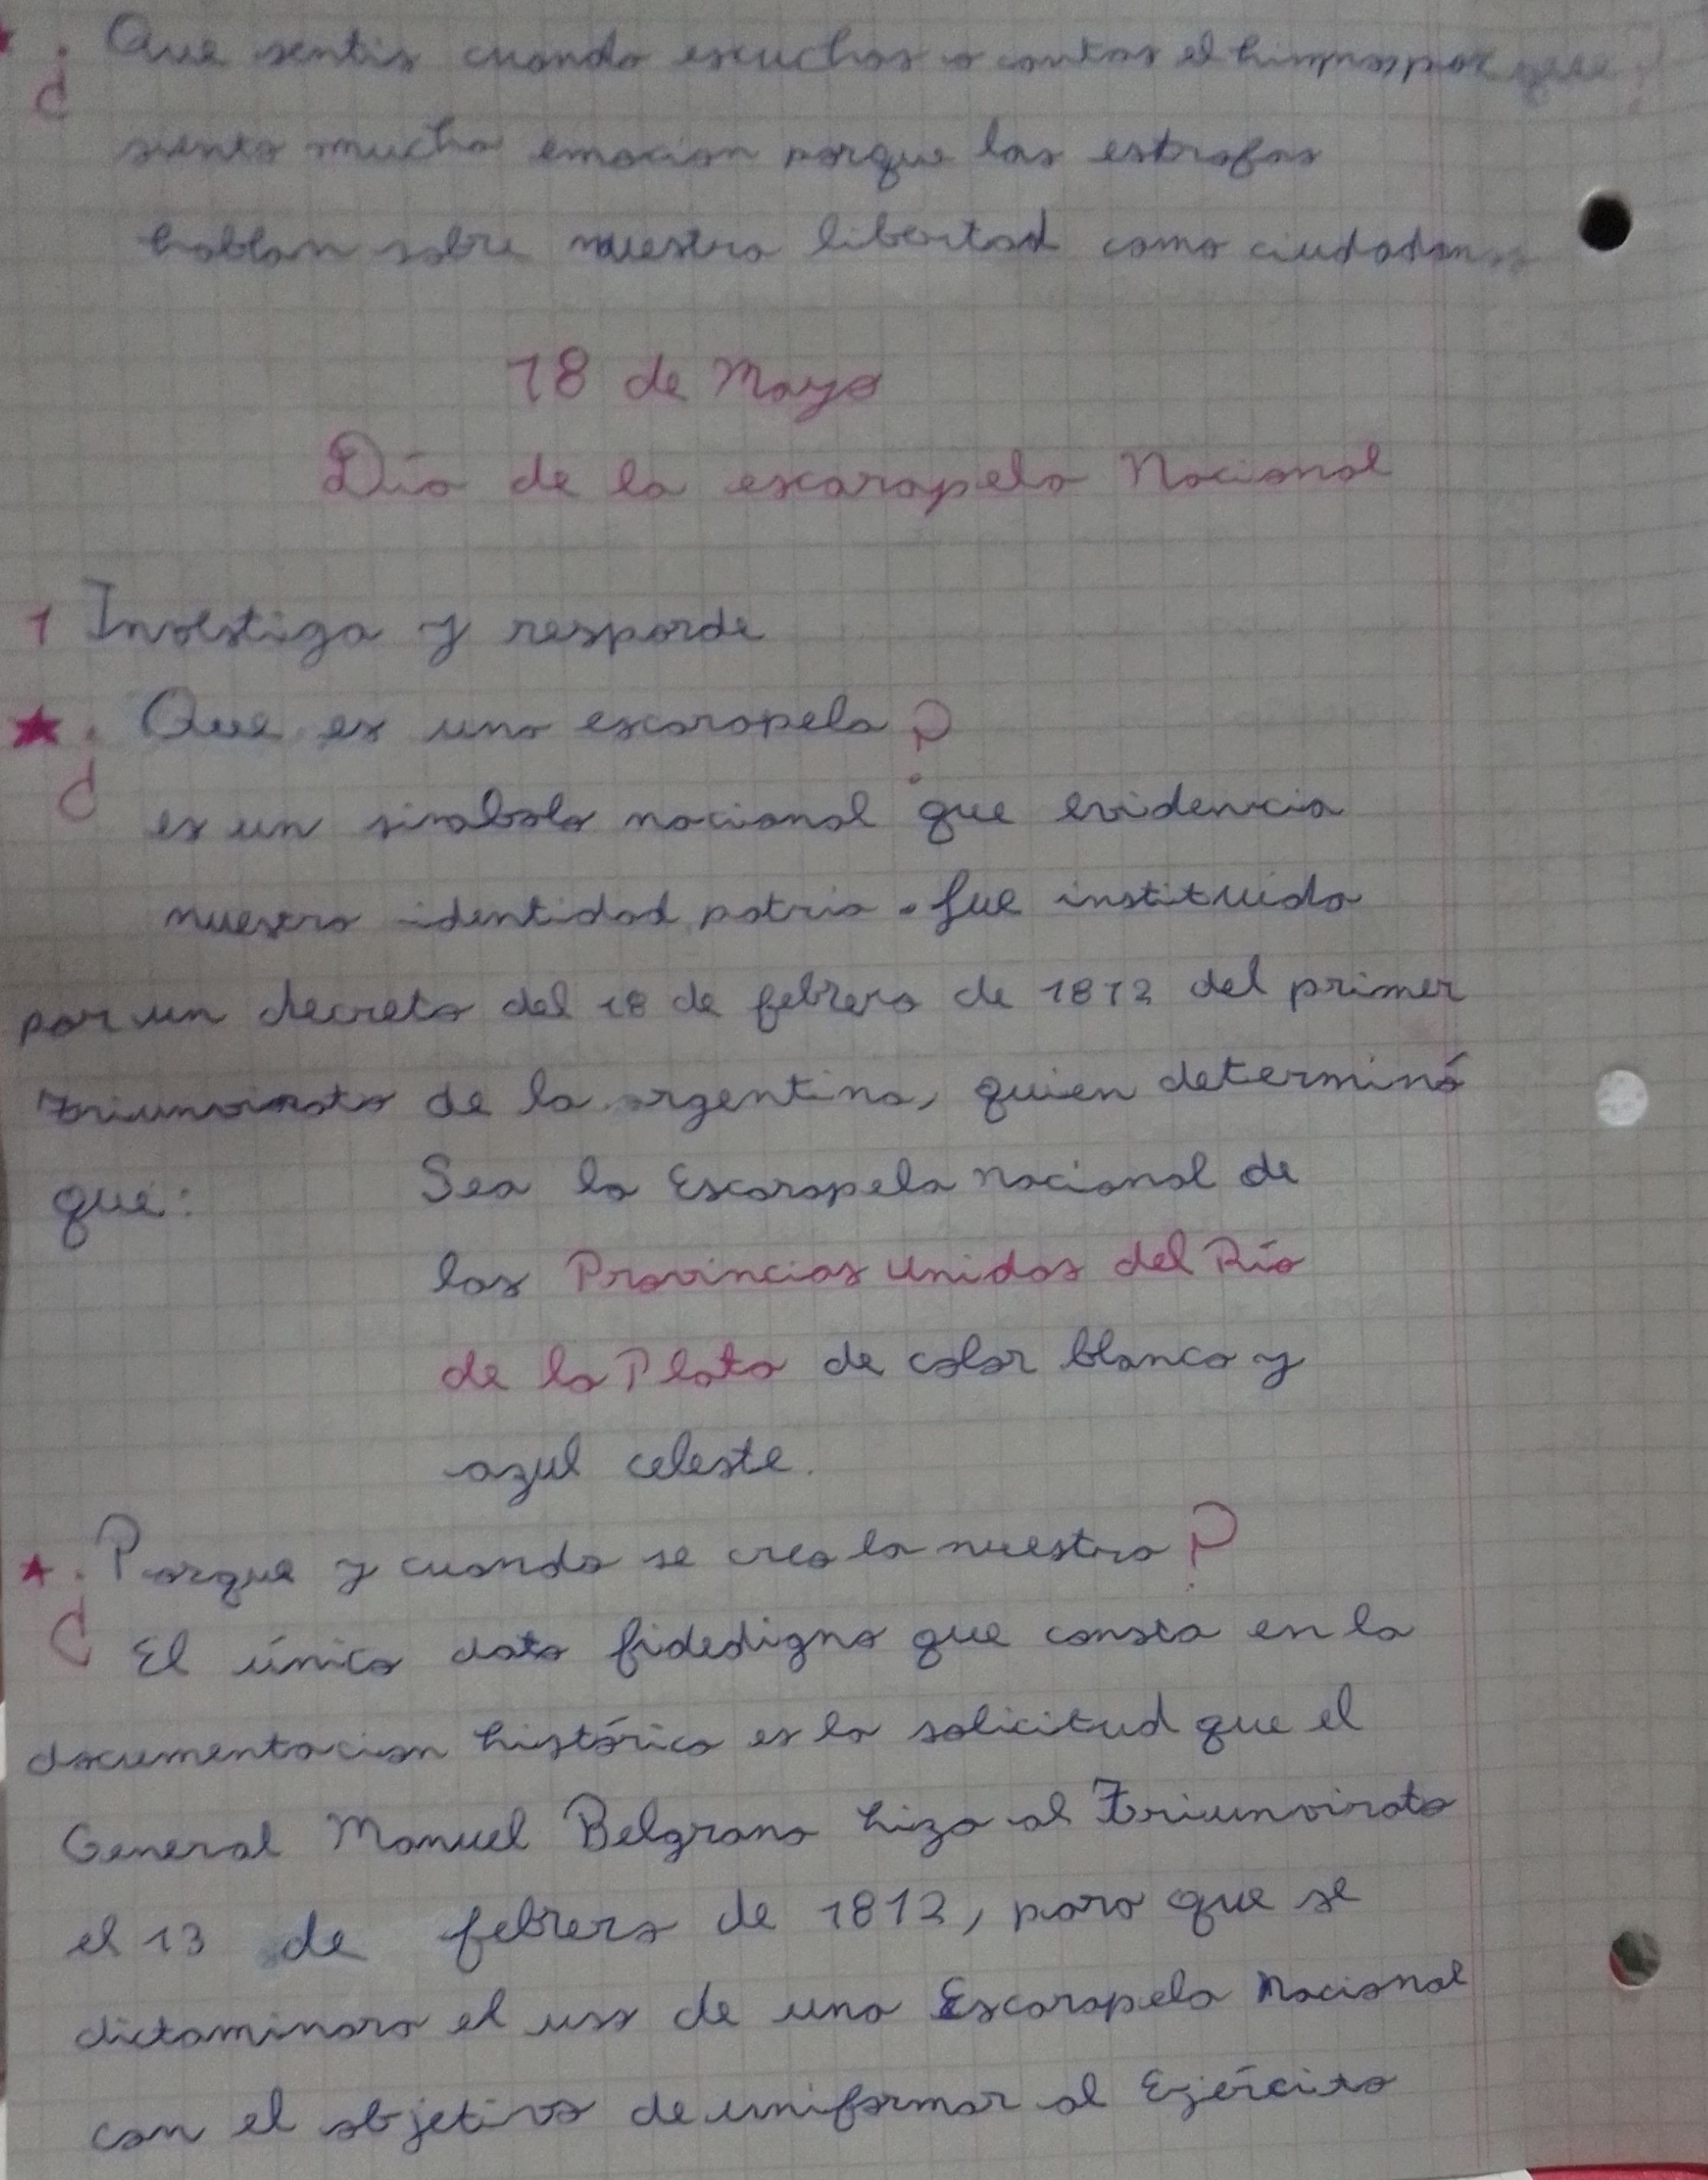 ¿Que sentis cuando escuchas o cantas el himno y por que?
siento mucha emocion porque las estrofas
hablan sobre nuestra libertad como ciudadanos
18 de Mayo
Día de la escarapela Nacional
1 Investiga y responde
★ ¿Que es una escarapela?
es un simbolo nacional que evidencia
nuestra identidad patria. fue instituida
por un decreto del 18 de febrero de 1812 del primer
triunvirato de la argentina, quien determinó
que: Sea la Escarapela nacional de
las Provincias Unidas del Río
de la Plata de color blanco y
azul celeste.
★ ¿Porque y cuando se crea la nuestra?
El único dato fidedigno que consta en la
documentacion histórica es la solicitud que el
General Manuel Belgrano hizo al Triunvirato
el 13 de febrero de 1812, para que se
dictaminara el uso de una Escarapela Nacional
con el objetivo de uniformar al Ejército